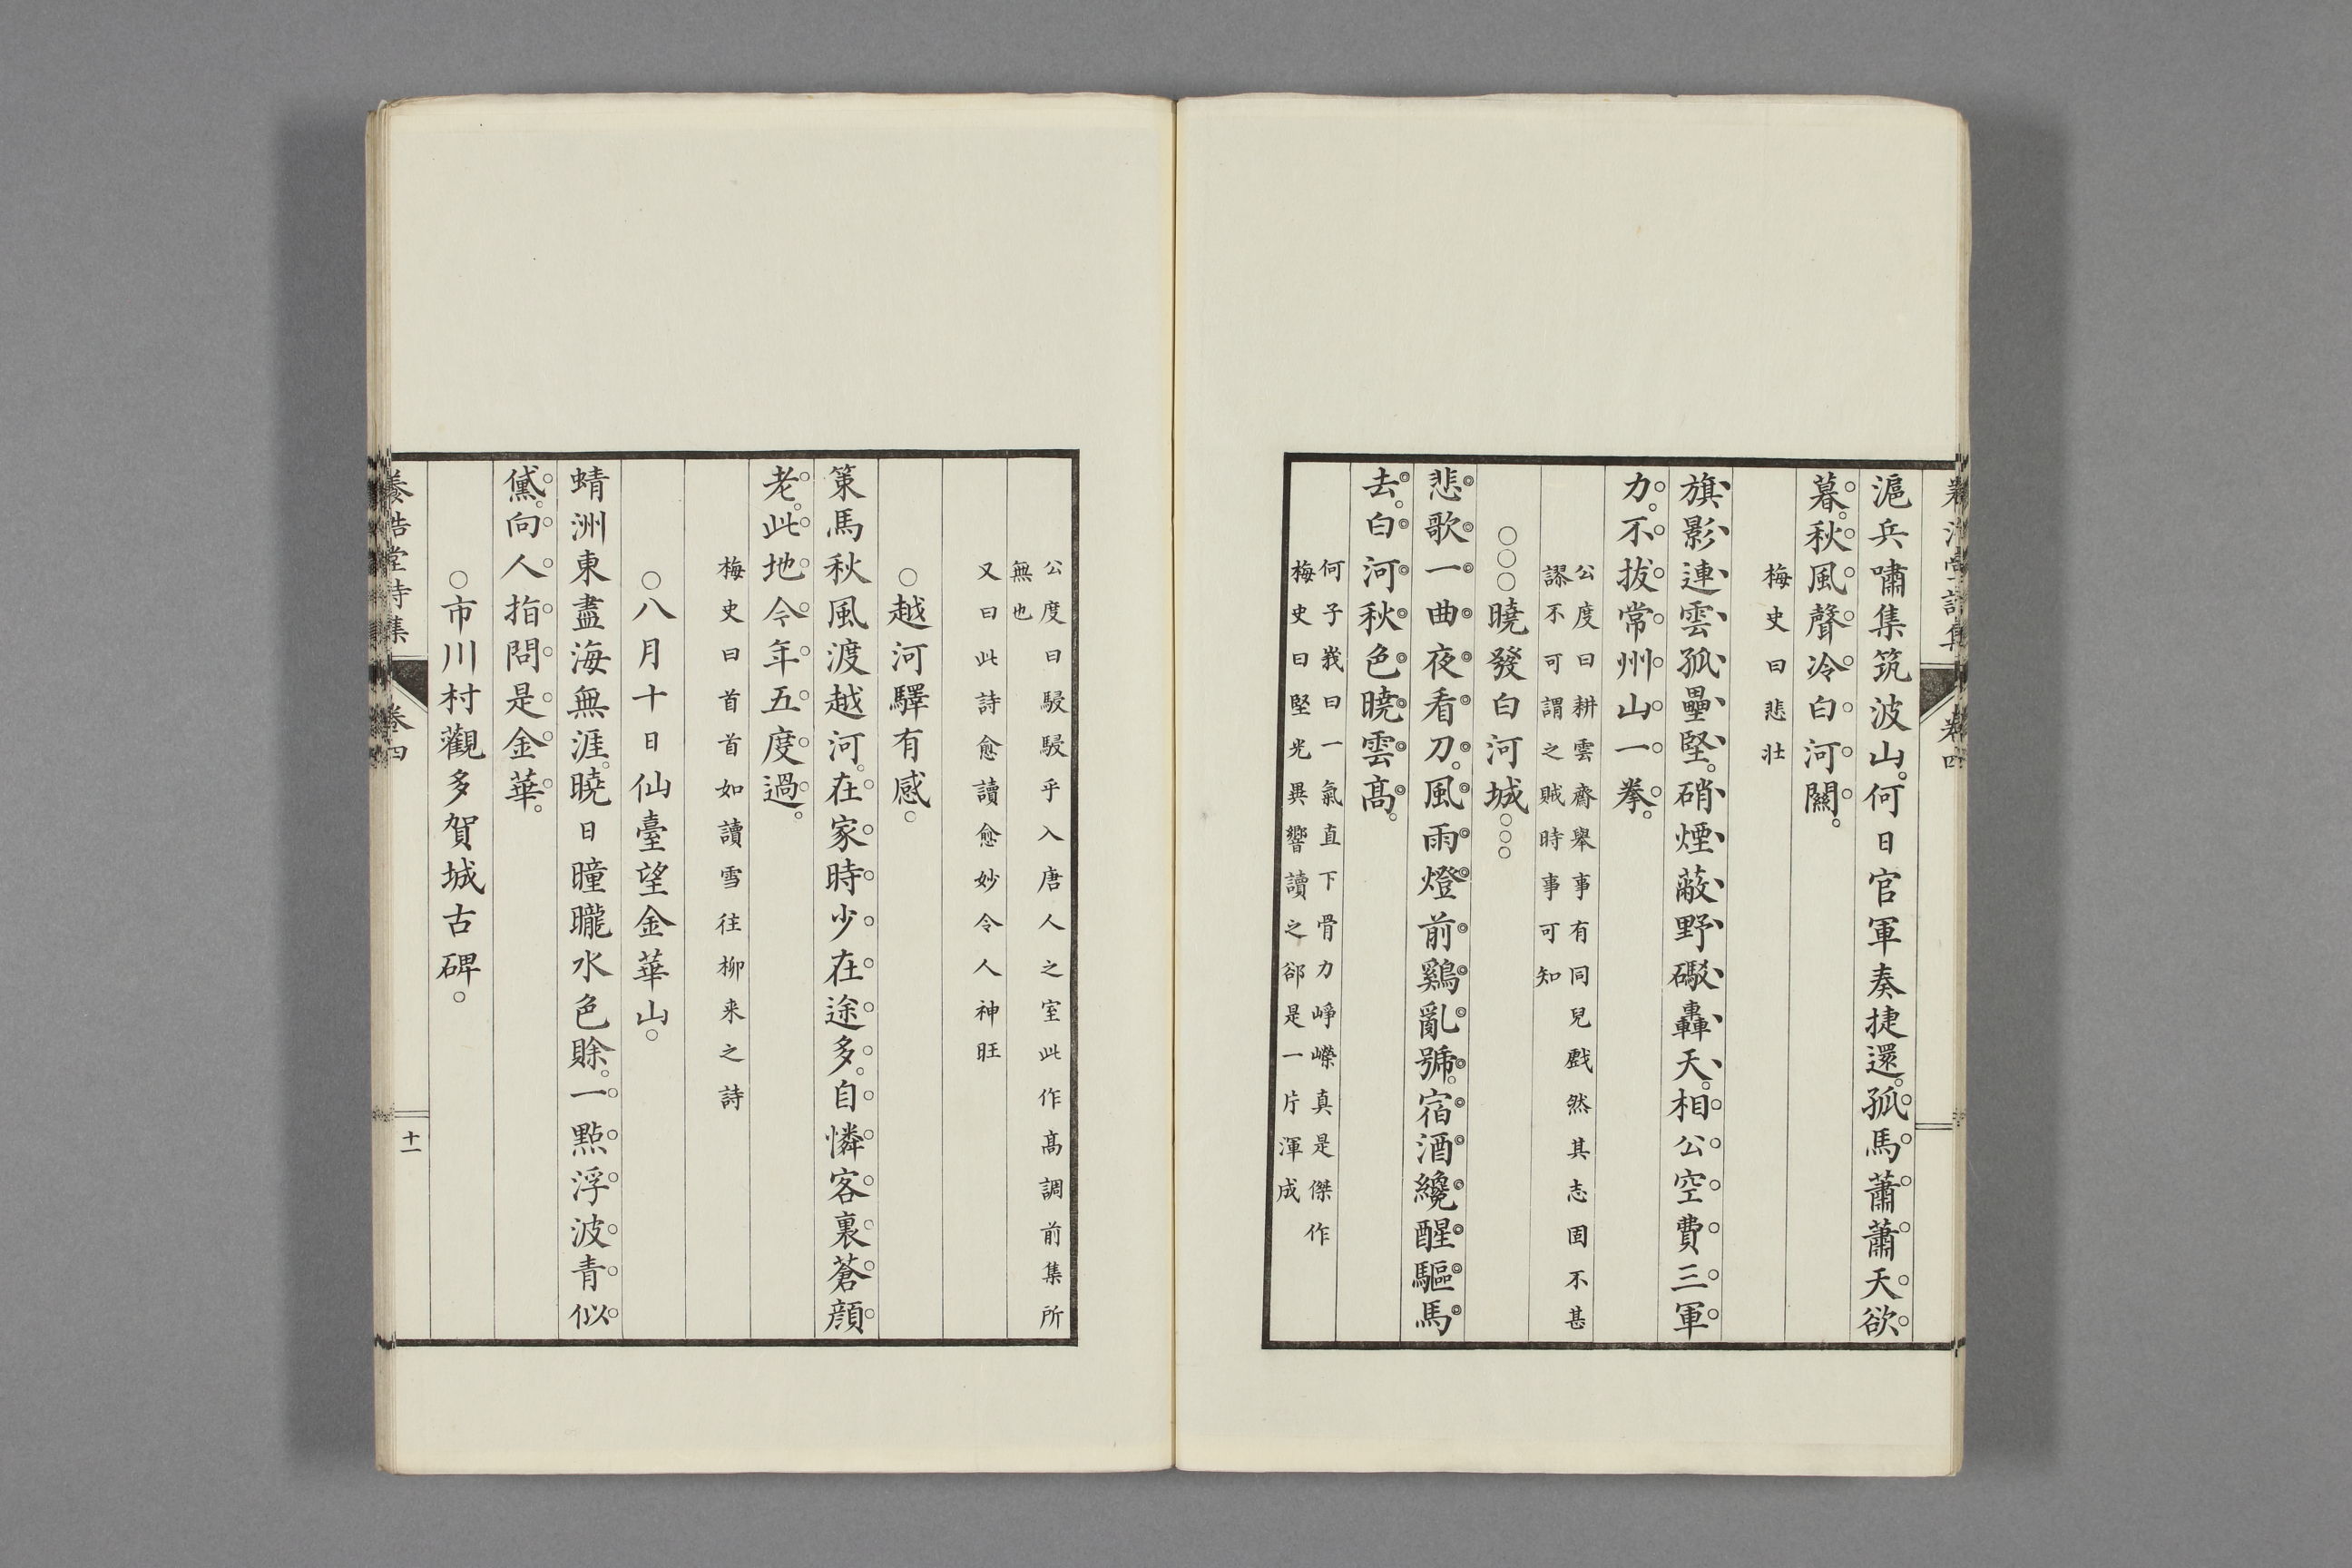 滬兵嘯集筑波山。何日官軍奏捷還。孤馬蕭蕭天欲
暮。秋風聲冷白河關。
梅史曰悲壯
旗影連雲孤壘堅。硝煙蔽野礮轟天。相公空費三軍
力。不拔常州山一拳。
公度曰耕雲齋舉事有同兒戲然其志固不甚
謬不可謂之賊時事可知
○○○曉發白河城○○○
悲歌一曲夜看刀。風雨燈前鷄亂號。宿酒纔醒驅馬
去。白河秋色曉雲高。
何子峩曰一氣直下骨力崢嶸真是傑作
梅史曰堅光異響讀之郤是一片渾成
公度曰駸駸乎入唐人之室此作高調前集所
無也
又曰此詩愈讀愈妙令人神旺
○越河驛有感○
策馬秋風渡越河。在家時少在途多。自憐客裏蒼顏
老。此地今年五度過。
梅史曰首首如讀雪往柳来之詩
○八月十日仙臺望金華山○
蜻洲東盡海無涯。曉日曈曨水色賒。一點浮波青似
黛。向人指問是金華。
○市川村觀多賀城古碑○
養浩堂詩集
卷四
十一